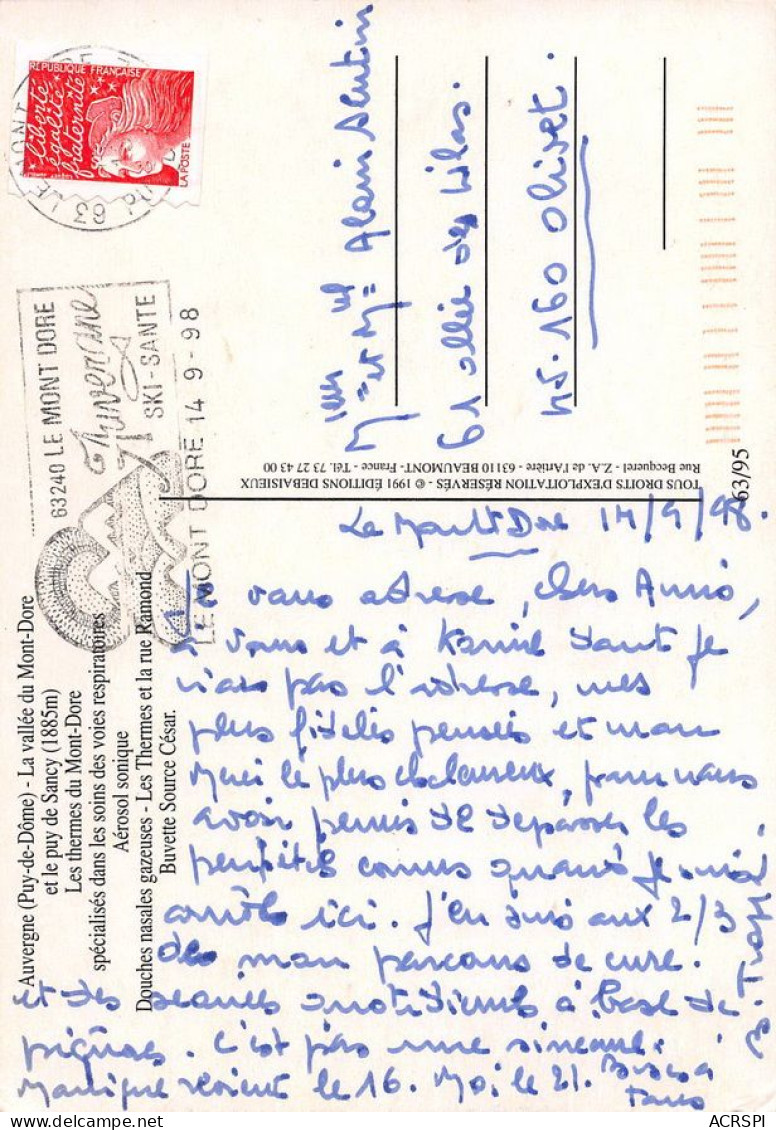 RÉPUBLIQUE FRANÇAISE
liberté
égalité
fraternité
LA POSTE
63240 LE MONT DORE
Auvergne
SKI-SANTE
LE MONT DORE 14-9-98
Auvergne (Puy-de-Dôme) - La vallée du Mont-Dore
et le puy de Sancy (1885m)
Les thermes du Mont-Dore
spécialisés dans les soins des voies respiratoires
Aérosol sonique
Douches nasales gazeuses - Les Thermes et la rue Ramond
Buvette Source César.
TOUS DROITS D'EXPLOITATION RÉSERVÉS - © 1991 ÉDITIONS DEBAISIEUX
Rue Becquerel Z.A. de l'Artière - 63110 BEAUMONT - France - Tél. 73 27 43 00
63/95
et Alain
61 allée des Lilas.
45.160 Olivet.
Le Mont Dore 14/9/98.
Je vous adresse, chers Amis,
à vous et à dont je
n'ais pas l'adresse, mes
plus fidèles pensées et mon
merci le plus chaleureux, pour nous
avoir permis de déposer les
connus quand je suis
arrêté ici. J'en suis aux 2/3
de mon parcours de cure.
et des séances quotidiennes à base de
piqûres. C'est pas une sinécure.
Monique revient le 16. Moi le 21. Bises à
Tous